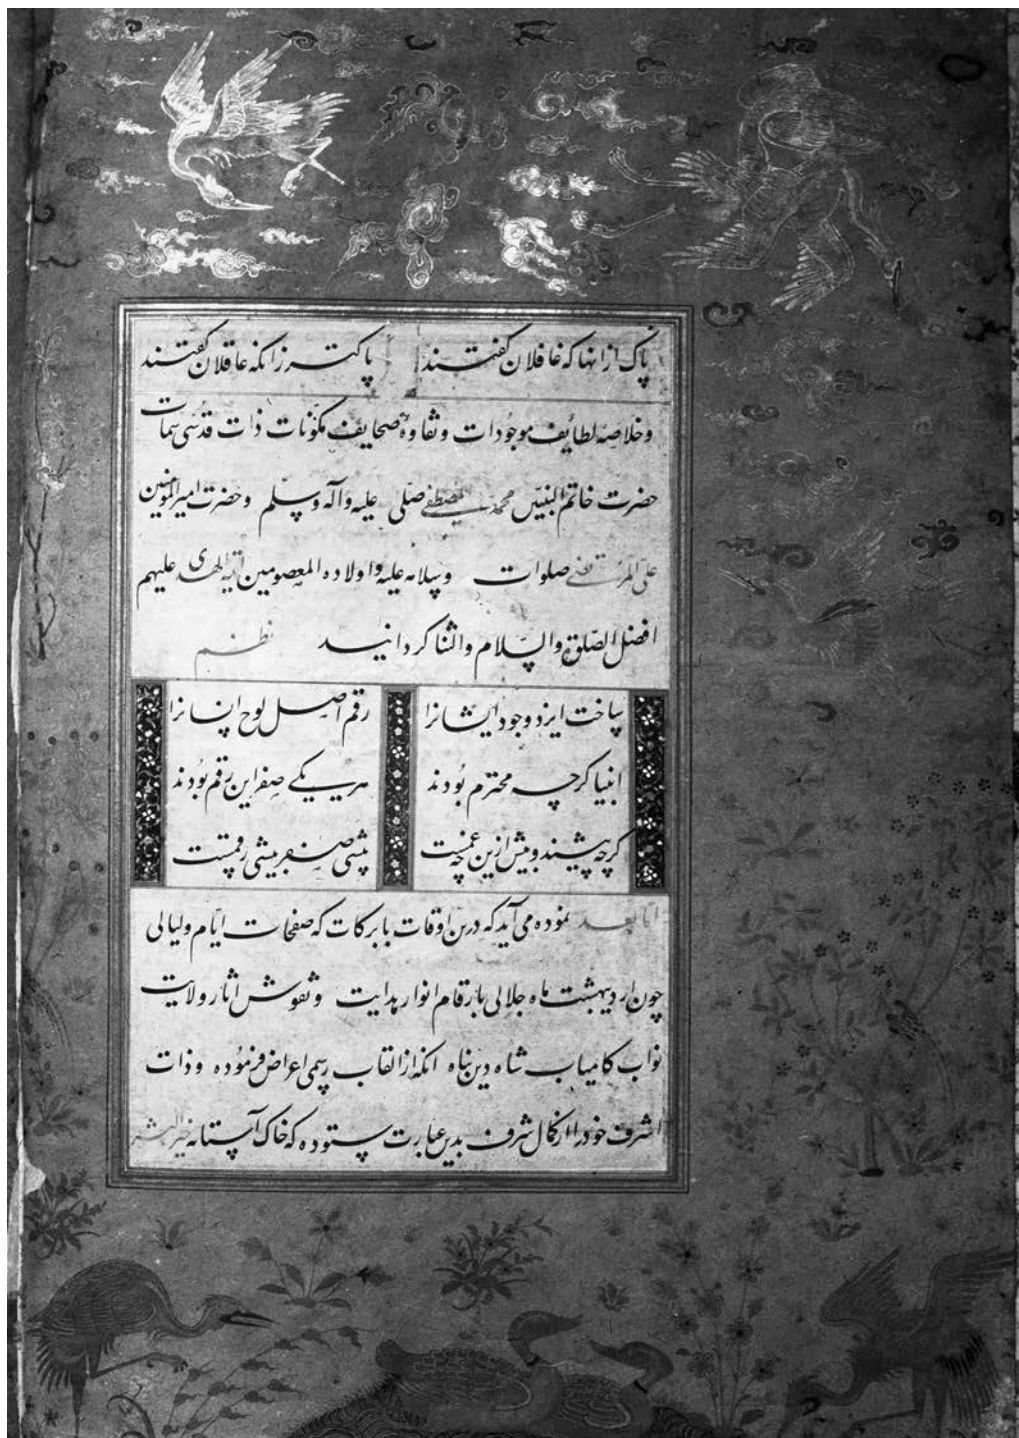 پاک ازانها که غافلان گفتند پاکتر زانکه عاقلان گفتند
و خلاصه لطایف موجودات و نقاوهٔ صحایف مکوّنات ذات قدسی سمات
حضرت خاتم النبیّن محمد المصطفی صلی علیه وآله وسلّم و حضرت امیرالمومنین
علی المرتضی صلوات وسلامه علیه واولاده المعصومین ائمة الهدی علیهم
افضل الصّلوة والسّلام والثنا کردانید نظم
ساخت ایزد وجود ایشانرا رقم اصل لوح انسانرا
انبیا کرچه محترم بودند هر یکی صفر این رقم بودند
کرچه پیشند و بیش ازین غم نیست پیشی صفر بهر بیشی رقمست
اما بعد نموده می آید که درین اوقات با برکات که صفحات ایّام و لیالی
چون اردیبهشت ماه جلالی بارقام انوار هدایت و نقوش اثار ولایت
نواب کامیاب شاه دین پناه انکه از القاب رسمی اعراض فرموده و ذات
اشرف خود را از کمال شرف بدین عبارت ستوده که خاک آستانه خیرالبشر